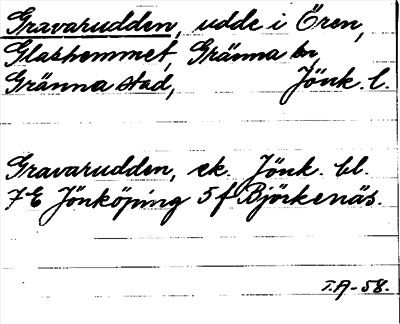 Gravarudden, udde i Ören,
Glashemmet, Gränna ln,
Gränna stad, Jönk. l.
Gravarudden, ek. Jönk. bl.
7E Jönköping 5f Björkenäs.
T.A-58.